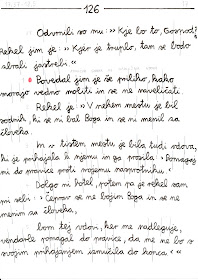 126
Odvrnili so mu: »Kje bo to, Gospod?
Rekel jim je: »Kjer je truplo, tam se bodo
zbrali jastrebi.«
Povedal jim je še priliko, kako
morajo vedno moliti in se ne naveličati.
Rekel je: »V nekem mestu je bil
sodnik, ki se ni bal Boga in se ni menil za
človeka.
In v tistem mestu je bila tudi vdova,
ki je prihajala k njemu in ga prosila: »Pomagaj
mi do pravice proti mojemu nasprotniku.«
Dolgo ni hotel, potem pa je rekel sam
pri sebi: »Čeprav se ne bojim Boga in se ne
menim za človeka,
bom tej vdovi, ker me nadleguje,
vendarle pomagal do pravice, da me ne bo s
svojim prihajanjem izmučila do konca.««